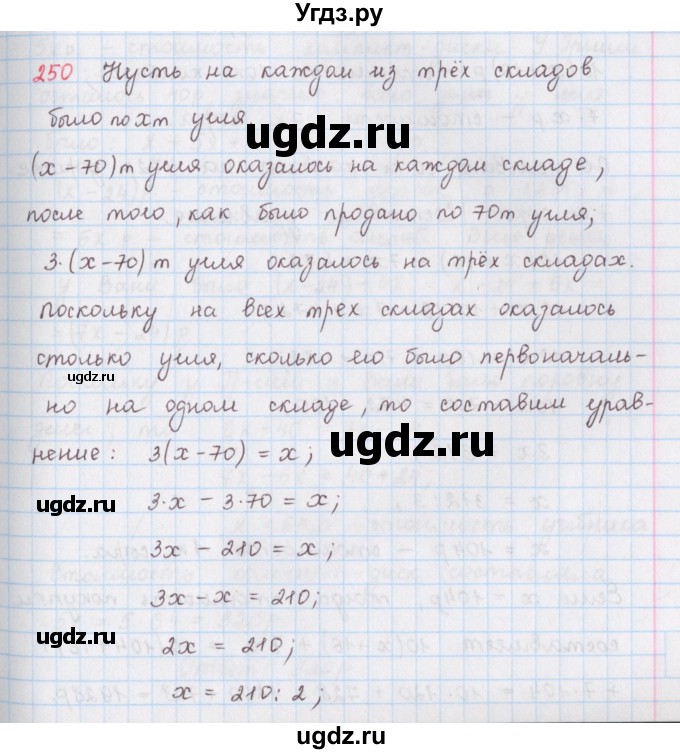 Угдз.ру
250 Пусть на каждом из трёх складов
было по x т угля.
ugdz.ru
(x - 70) т угля оказалось на каждом складе,
после того, как было продано по 70 т угля;
ugdz.ru
3·(x-70) т угля оказалось на трёх складах.
поскольку на всех трех складах оказалось
столько угля, сколько его было первоначаль-
ugdz.ru
но на одном складе, то составим урав-
нение: 3(x-70) = x;
ugdz.ru
ugdz.ru
3·x - 3·70 = x;
3x - 210 = x;
ugdz.ru
3x - x = 210;
ugdz.ru
2x = 210;
ugdz.ru
x = 210 : 2;
Угдз.ру